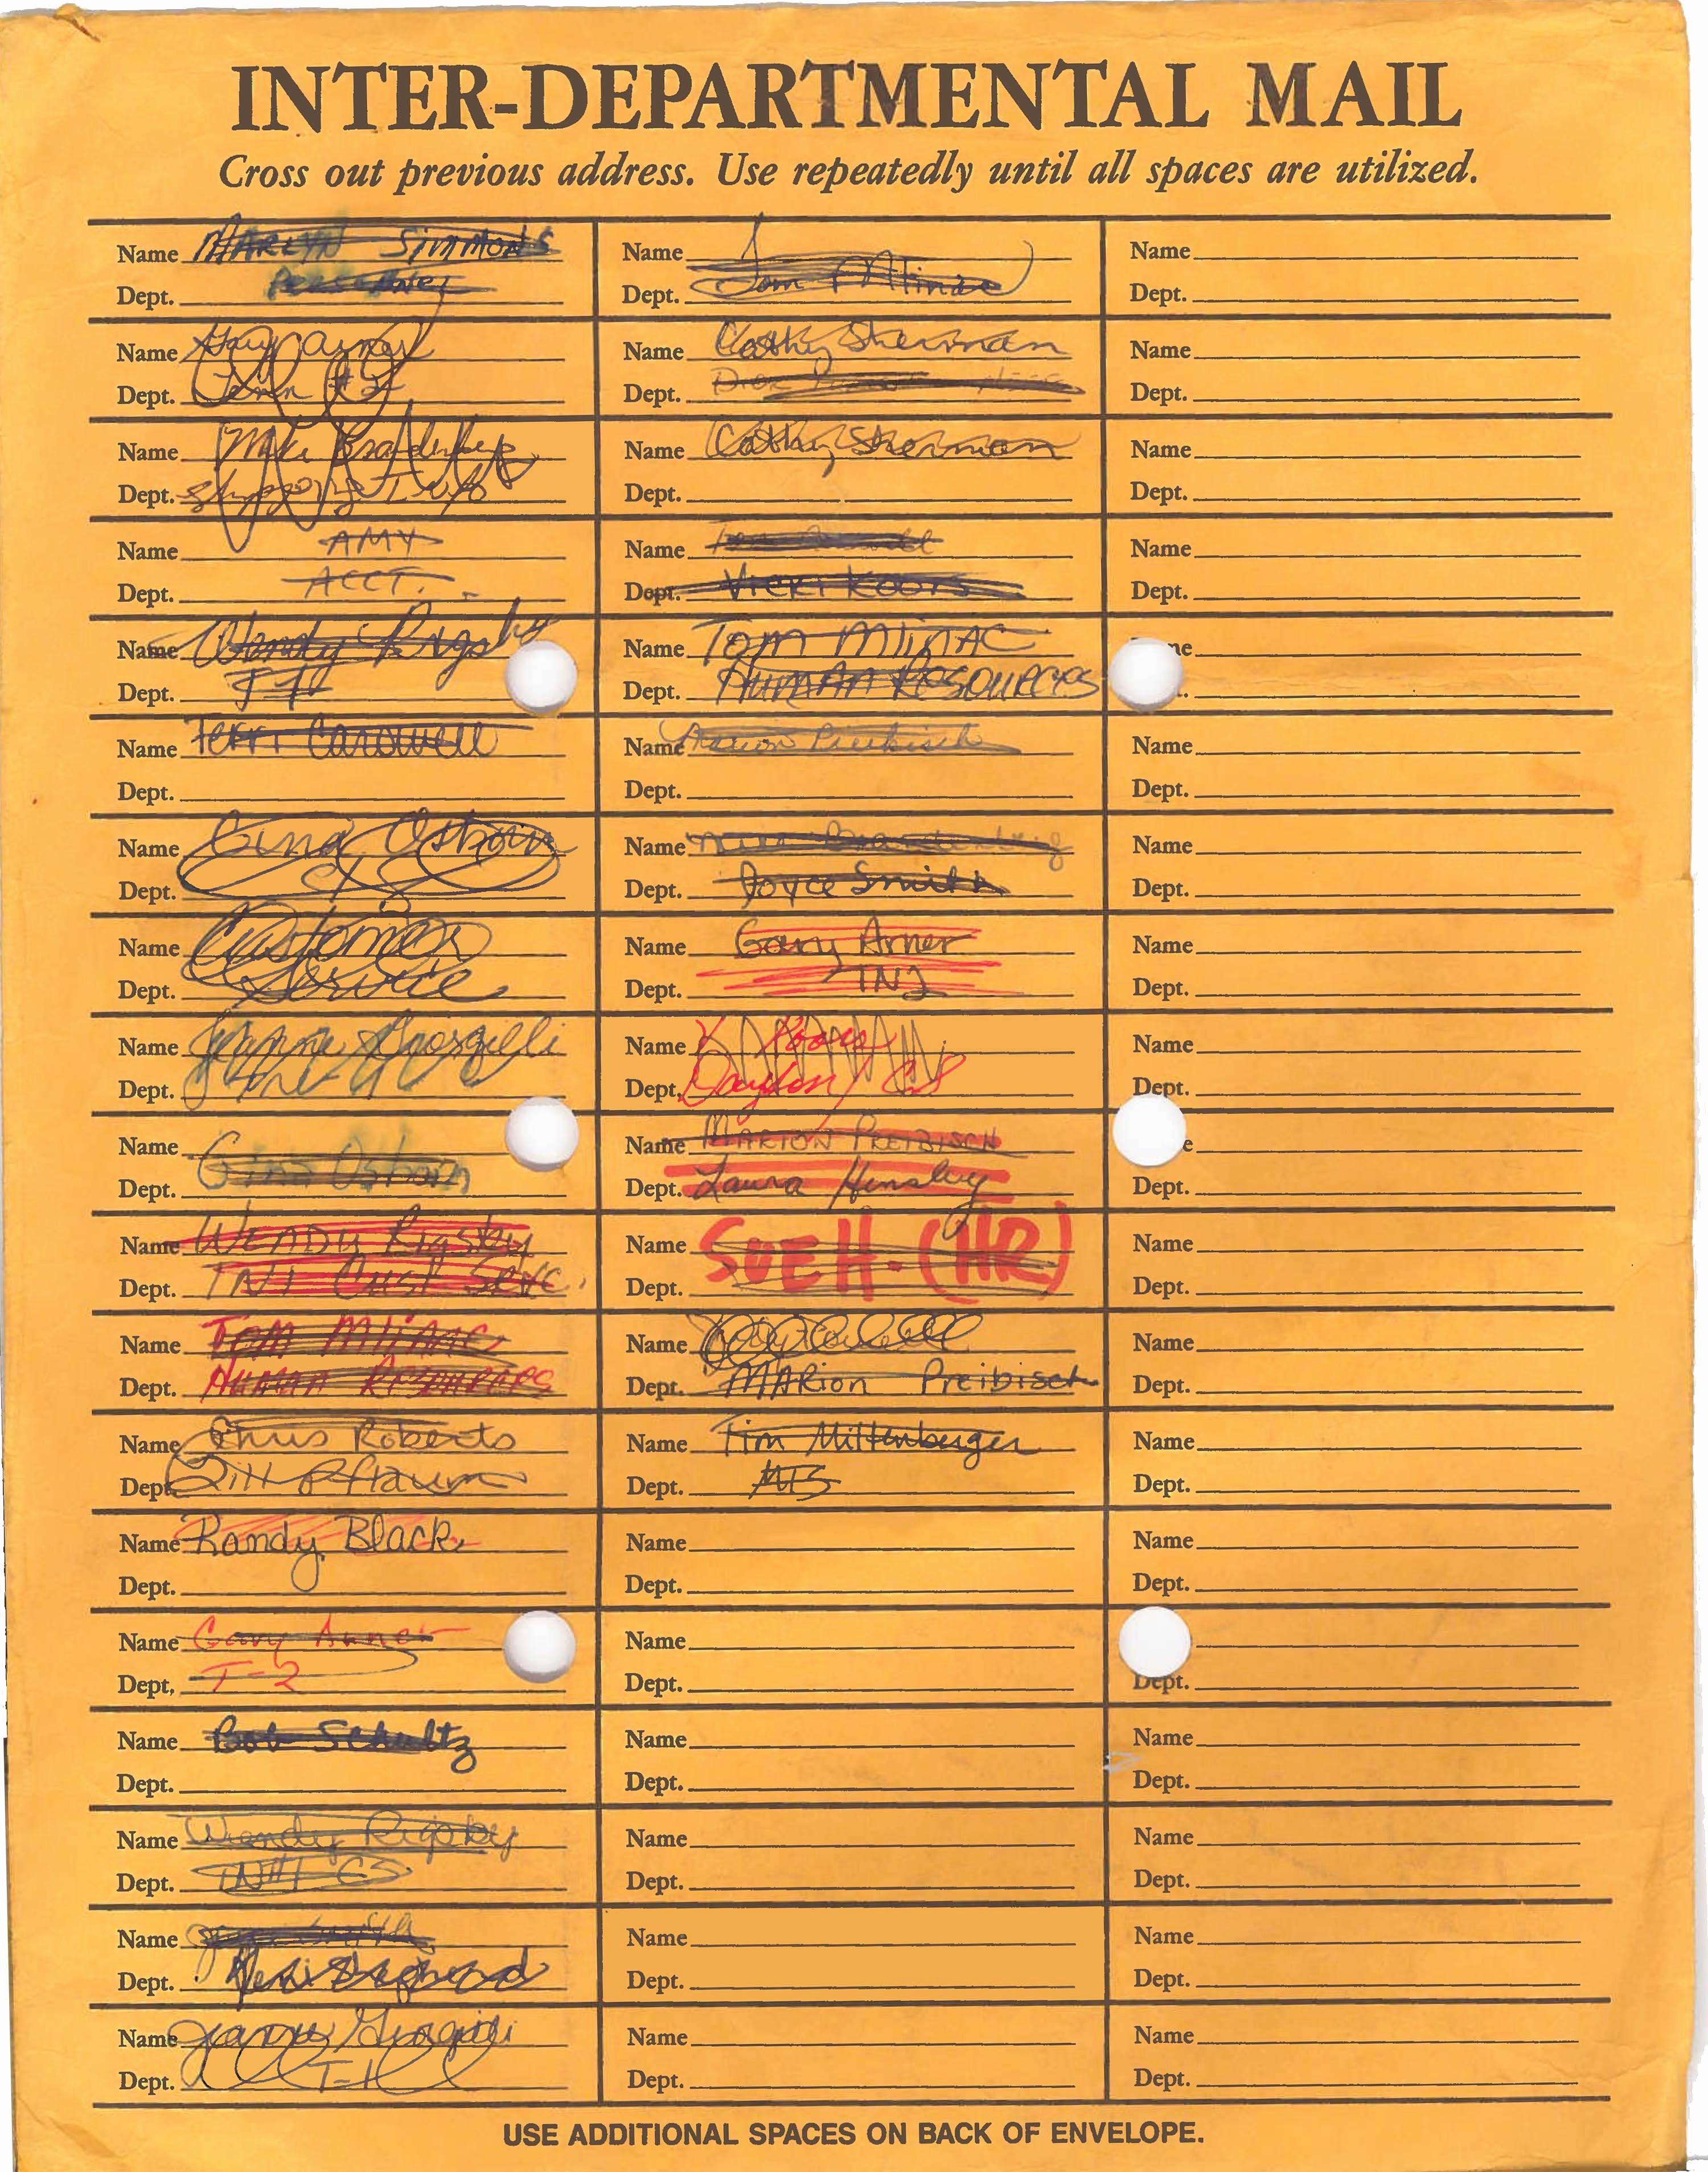 INTER-DEPARTMENTAL MAIL
Cross out previous address. Use repeatedly until all spaces are utilized.
Name MARLYN SIMMONS
Dept.
Name
Dept.
Name Mike
Dept.
Name AMY
Dept. ACCT.
Name Wendy Rigsby
Dept.
Name Terri Carowell
Dept.
Name Gina Osborn
Dept. CS
Name Customer
Dept. Service
Name
Dept.
Name
Dept. Gina Osborn
Name WENDY Rigsby
Dept. TN1 Cust Servc.
Name Tom Mlinac
Dept. Human Resources
Name Chris Roberts
Dept. Bill Pflaum
Name Randy Black
Dept.
Name Gary Arner
Dept. T-2
Name Bob Schultz
Dept.
Name Wendy Rigsby
Dept. TN#1 CS
Name Smith
Dept.
Name
Dept. T-1
Name
Dept. Tom Mlinac
Name Cathy Sherman
Dept.
Name Cathy Sherman
Dept.
Name
Dept. Vicki Koors
Name Tom Mlinac
Dept. Human Resources
Name Marion Preibisch
Dept.
Name Mike Brandenburg
Dept. Joyce Smith
Name Gary Arner
Dept. TN2
Name V Koors
Dept. Dayton/CS
Name MARION PREIBISCH
Dept. Laura Hensley
Name SUE H. (HR)
Dept.
Name
Dept. MARion Preibisch
Name Tim Miltenberger
Dept. MIS
Name
Dept.
Name
Dept.
Name
Dept.
Name
Dept.
Name
Dept.
Name
Dept.
Name
Dept.
Name
Dept.
Name
Dept.
Name
Dept.
Name
Dept.
Name
Dept.
Name
Dept.
Name
Dept.
Name
Dept.
Name
Dept.
Name
Dept.
Name
Dept.
Name
Dept.
Name
Dept.
Name
Dept.
Dept.
Name
Dept.
Name
Dept.
Name
Dept.
Name
Dept.
USE ADDITIONAL SPACES ON BACK OF ENVELOPE.